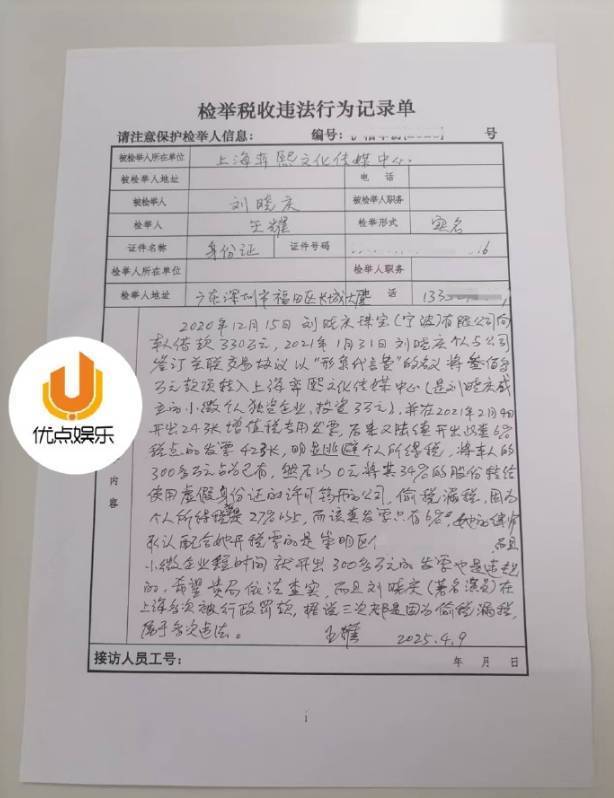 检举税收违法行为记录单
请注意保护检举人信息： 编号： 号
被检举人所在单位 上海弈熙文化传媒中心.
被检举人地址 电 话
被检举人 刘晓庆 被检举人职务
检举人 王耀 检举形式 实名
证件名称 身份证 证件号码 16
检举人所在单位 检举人职务
检举人地址 广东深圳市福田区长城大厦 话 133
2020年12月15日刘晓庆珠宝(宁波)有限公司向
本人借款330万元，2021年1月31日刘晓庆个人与公司
签订关联交易协议以“形象代言费”的名义将叁佰多
万元款项转入上海弈熙文化传媒中心(是刘晓庆成
立的小微个人独资企业，投资3万元)，并在2021年2月
开出24张增值税专用发票，后来又陆续开出这类6%
税点的发票42张，明显逃避个人所得税，将本人的
300多万元占为己有，然后以0元将其34%的股份转给
使用虚假身份证的许可转开的公司，偷税漏税，因为
个人所得税 ，而该类发票只有6%，她的律师
承认配合她开税票的是崇明区 而且
小微企业短时间就开出300多万元的发票也是违规
的，希望贵局依法查实，而且刘晓庆(著名演员)在
上海多次被行政罚款，据说三次都是因为偷税漏税，
属于多次违法。 王耀 2025.4.9
内
容
接访人员工号： 年 月 日
1
优点娱乐